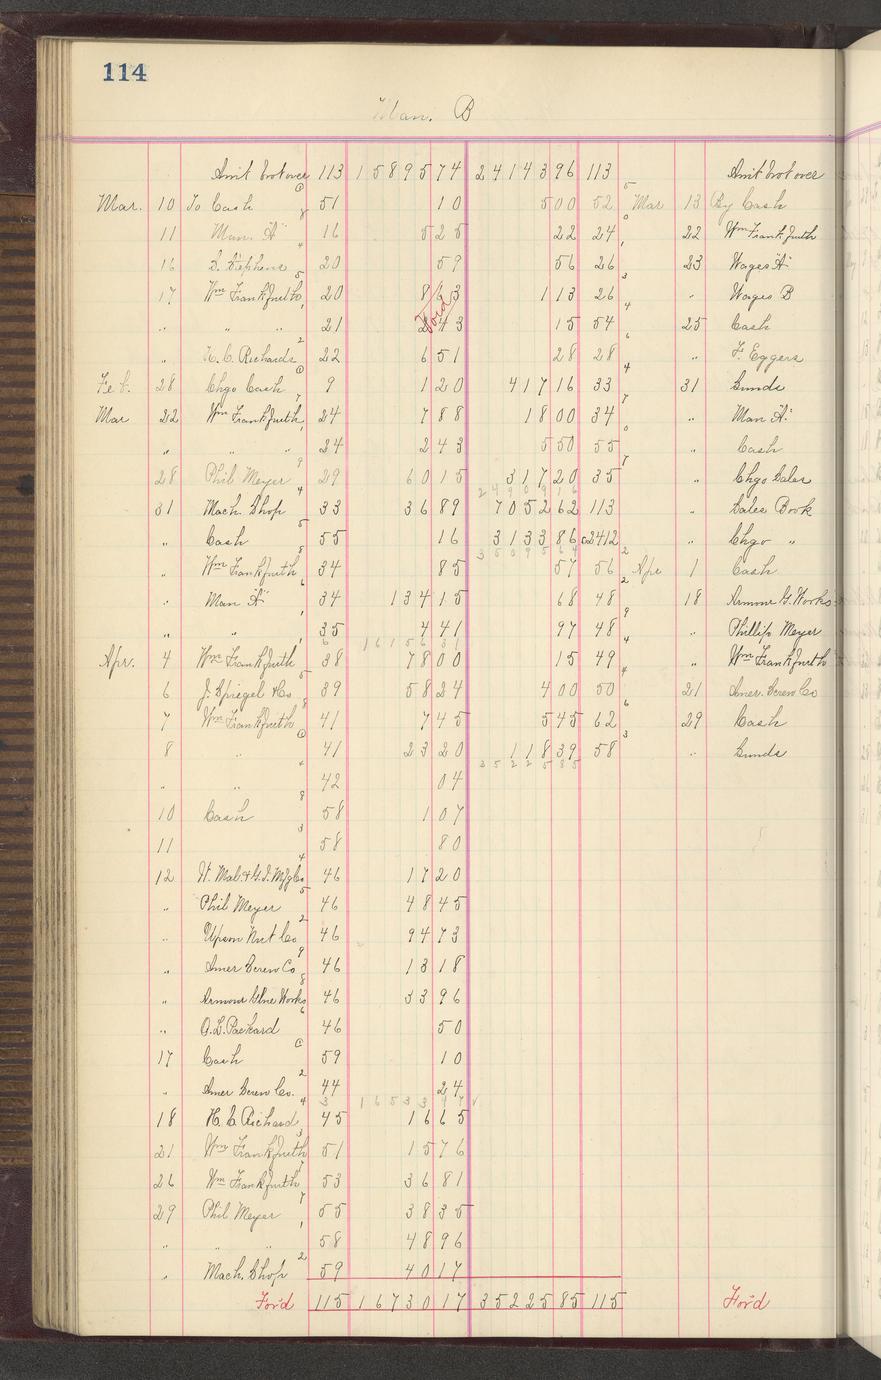 114
Man. B
Amt brot over 113 15895 74 24143 96 113 Amt brot over
Mar. 10 To Cash 51 10 500 52 Mar 13 By Cash
11 Man. "A" 16 5 25 22 24 22 Wm Frankfurth
16 S. Stephens 20 59 56 26 23 Wages "A"
17 Wm Frankfurth 20 8 63 1 13 26 " Wages B
" " " 21 2 43 15 54 25 Cash
Void
" H. C. Richards 22 6 51 28 28 " F. Eggers
Feb. 28 Chgo Cash 9 1 20 417 16 33 31 Sunds
Mar 22 Wm Frankfurth 24 7 88 18 00 34 " Man "A"
" " " 24 2 43 5 50 55 " Cash
28 Phil Meyer 29 60 15 317 20 35 " Chgo Sales
24909 16
31 Mach. Shop 33 36 89 7052 62 113 " Sales Book
" Cash 55 16 3133 86 c2412 " Chgo "
35095 64
" Wm Frankfurth 34 85 57 56 Apr 1 Cash
" Man "A" 34 134 15 68 48 18 Armour G. Works
" " 35 4 41 97 48 " Phillip Meyer
16156 31
Apr. 4 Wm Frankfurth 38 78 00 15 49 " Wm Frankfurth
6 J. Spiegel & Co 39 58 24 4 00 50 21 Amer. Screw Co
7 Wm Frankfurth 41 7 45 5 45 62 29 Cash
8 " 41 23 20 118 39 58 " Sunds
35225 85
" " 42 04
10 Cash 58 1 07
11 58 80
12 W. Mal. & G. I. Mfg Co 46 17 20
" Phil Meyer 46 48 45
" Upson Nut Co 46 94 73
" Amer Screw Co 46 13 18
" Armour Glue Works 46 33 96
" O. L. Packard 46 50
17 Cash 59 10
" Amer Screw Co. 44 24
16533 97 √
18 H. C. Richard 45 16 65
21 Wm Frankfurth 51 15 76
26 Wm Frankfurth 53 36 81
29 Phil Meyer 55 38 35
" " " 58 48 96
" Mach. Shop 59 40 17
For'd 115 16730 17 35225 85 115 For'd